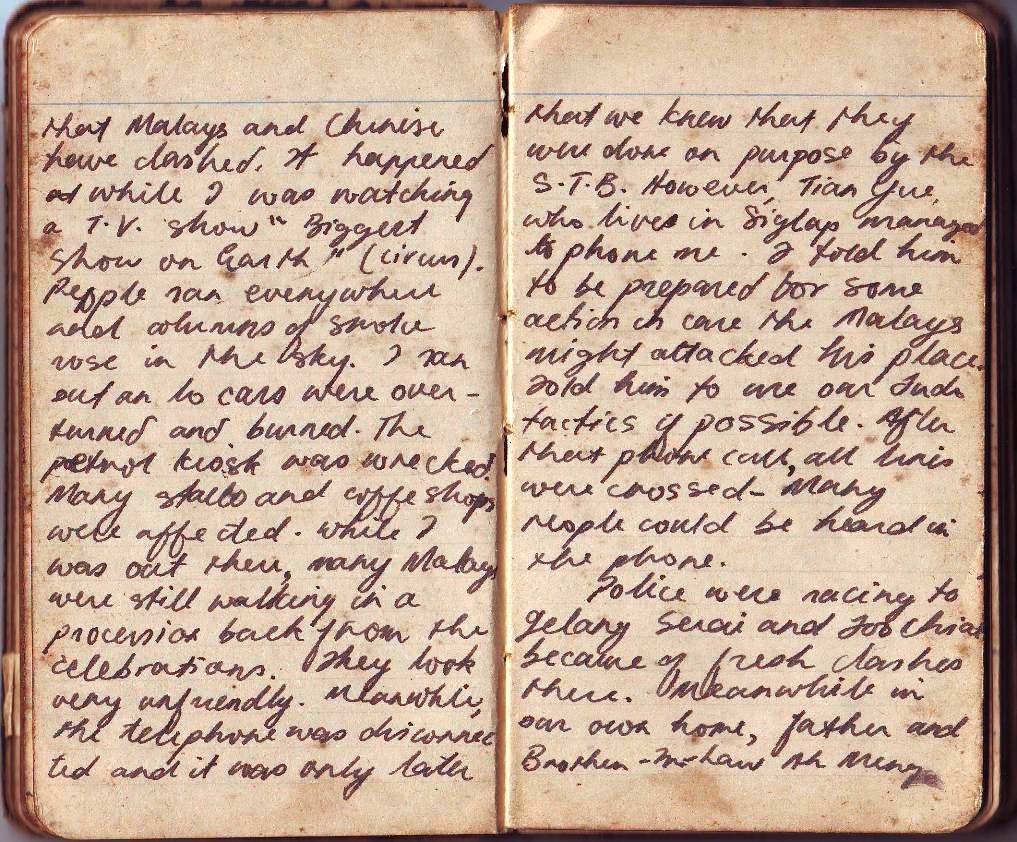 that Malays and Chinese
have clashed. It happened
at while I was watching
a T.V. show "Biggest
show on Earth" (circus).
People ran everywhere
and columns of smoke
rose in the sky. I ran
out an 10 cars were over-
turned and burned. The
petrol kiosk was wrecked.
Many stalls and coffe shops
were affected. While I
was out there, many Malays
were still walking in a
procession back from the
celebrations. They look
very unfriendly. Meanwhile,
the telephone was disconnec
ted and it was only later
that we knew that they
were done on purpose by the
S.T.B. However, Tian Yue,
who lives in Siglap managed
to phone me. I told him
to be prepared for some
action in case the Malays
might attacked his place.
Told him to use our Judo
tactics if possible. After
that phone call, all lines
were crossed - Many
people could be heard in
the phone.
Police were racing to
Gelang Serai and Joo Chiat
because of fresh clashes
there. Meanwhile in
our own home, father and
Brother-in-law Ah Meng